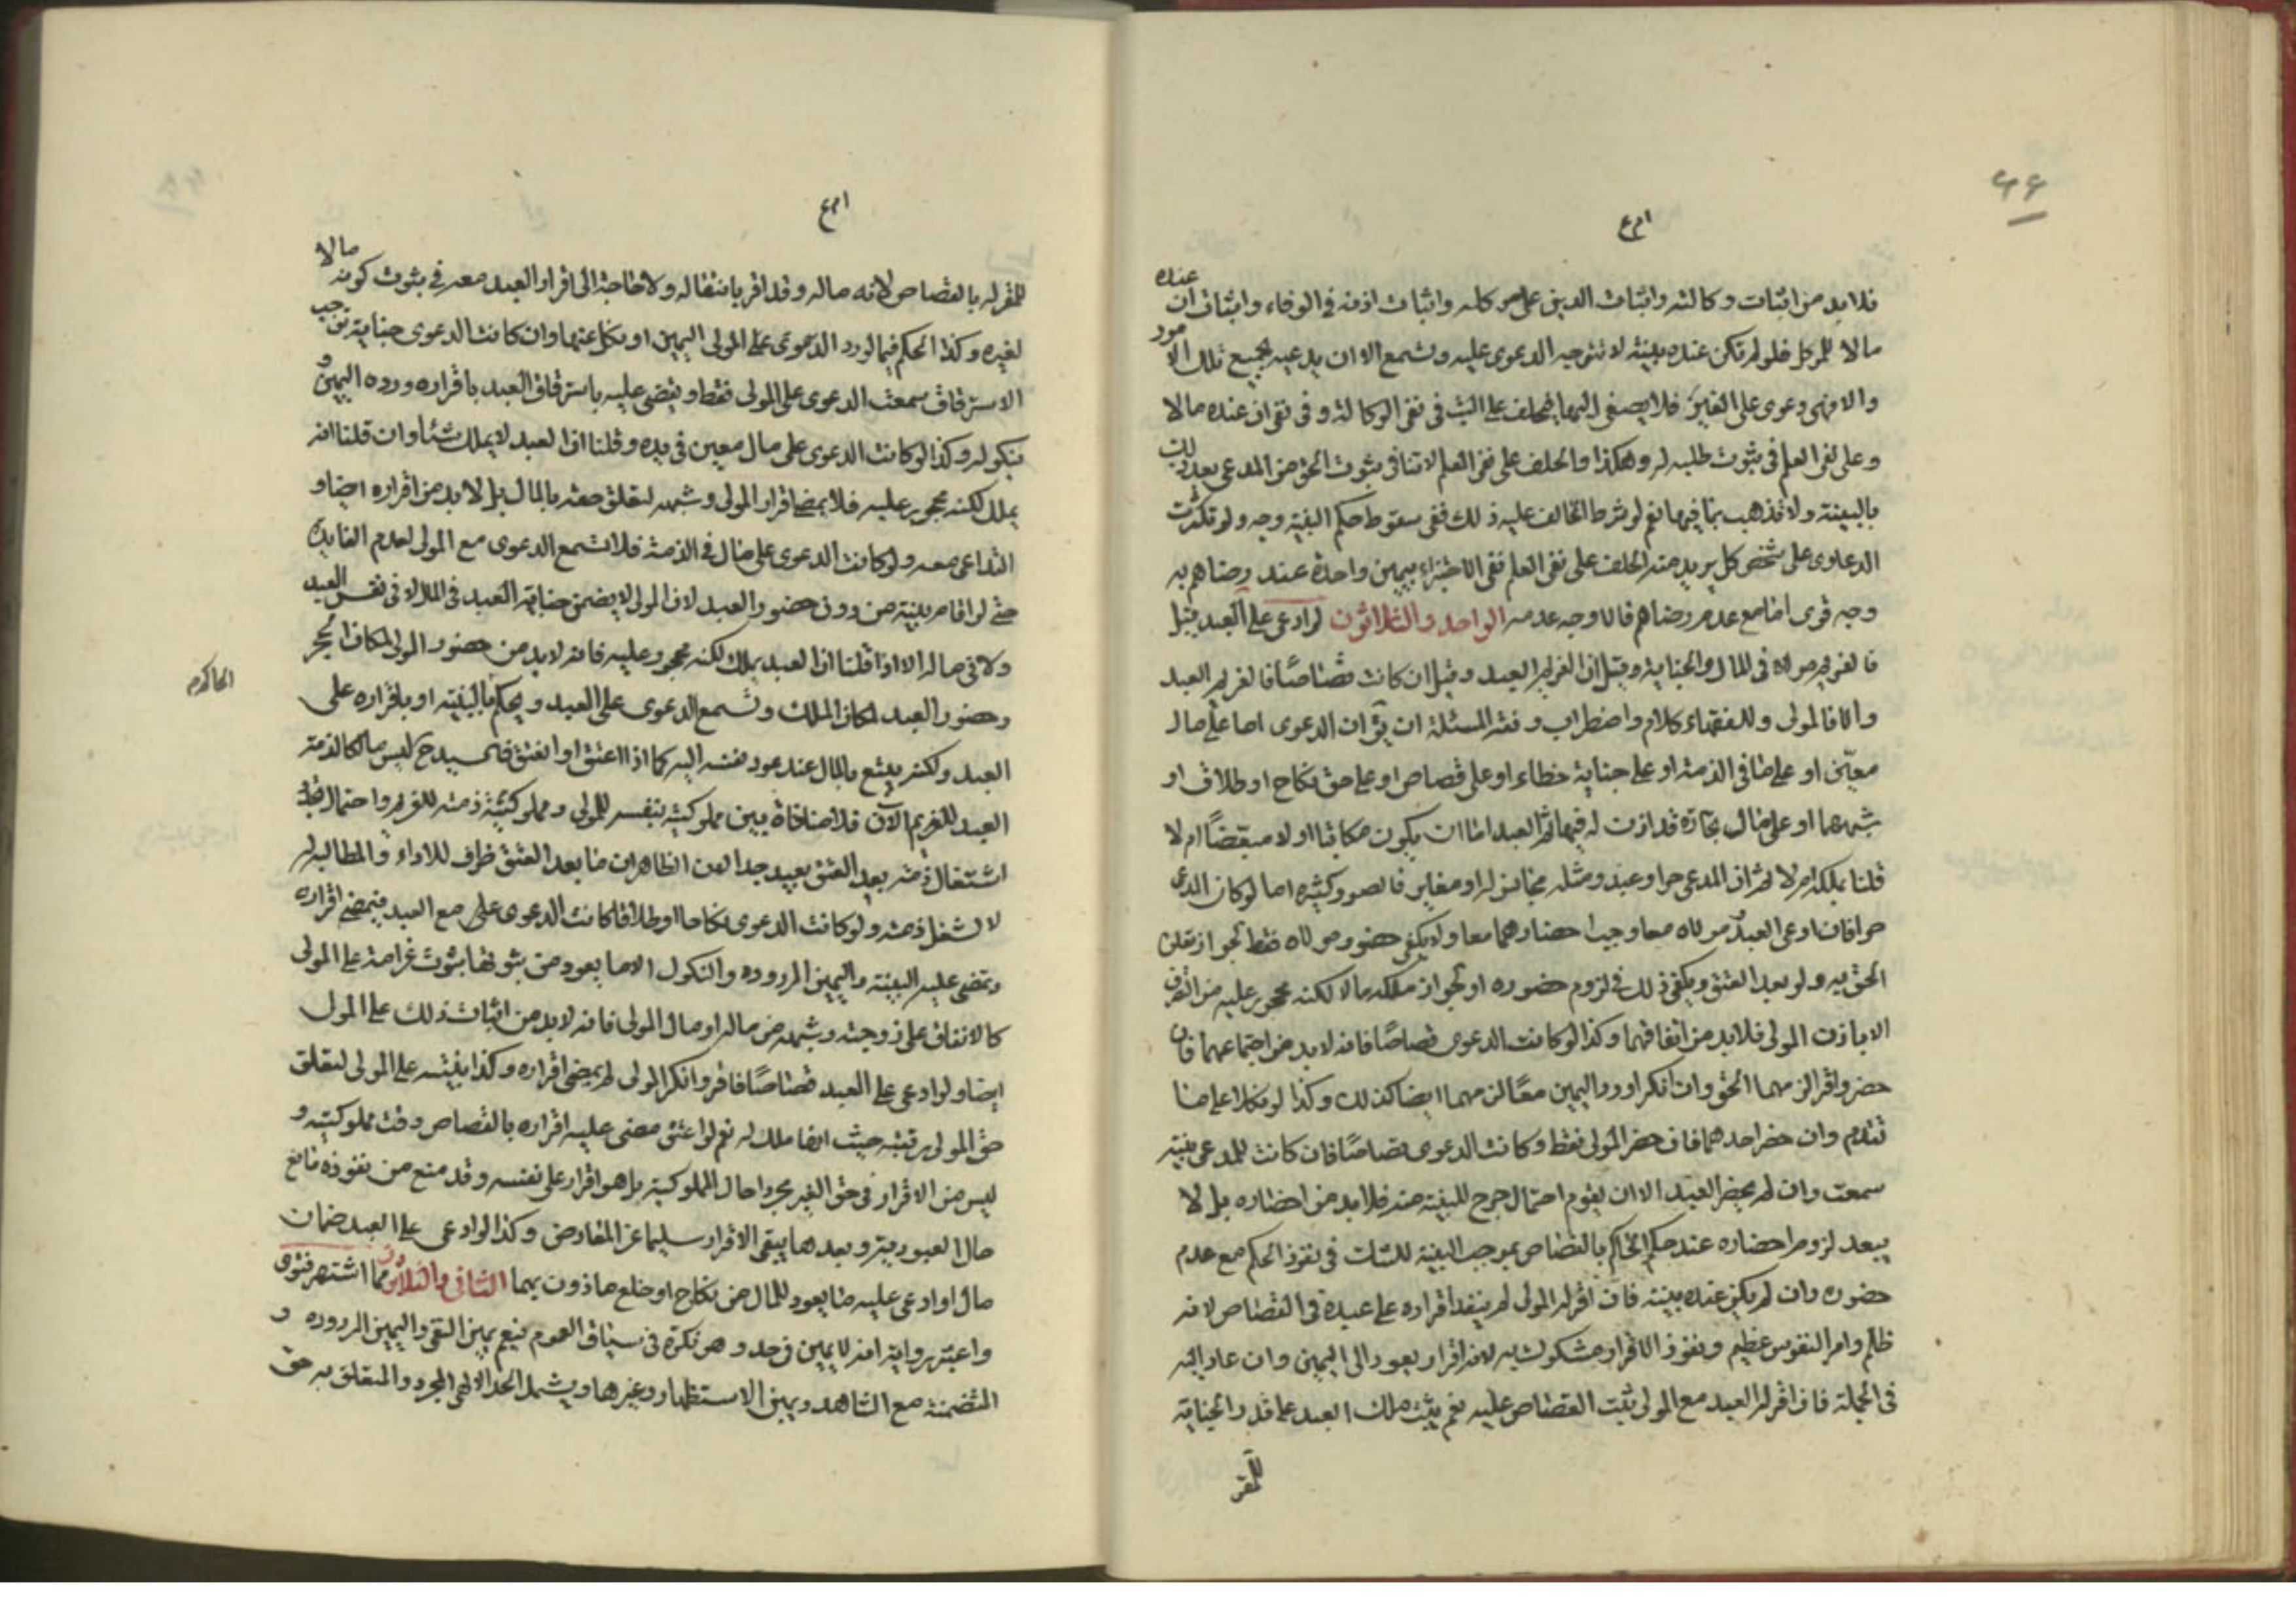 فلابد من اثبات وكالته واثبات الدين على موكله واثبات اذنه في الوفاء واثبات ان عنده
مالا للموكل فلو لم تكن عنده بينة لا تتوجه الدعوى عليه وتسمع الا ان يدعيه بجميع تلك الامور
والا فهي دعوى على الغير فلا يصغى اليها فيحلف على البت في نفي الوكالة وفي نفي ان عنده مالا
وعلى نفي العلم في ثبوت طلبه له وهكذا والحلف على نفي العلم لا تنافي ثبوت الحق من المدعي بعد ذلك
بالبينة ولا تذهب بما فيها نعم لو شرط الحالف عليه ذلك ففي سقوط حكم البينة وجه ولو تكثرت
الدعاوى على شخص كل يريد منه الحلف على نفي العلم ففي الاجتزاء بيمين واحدة عند رضاهم به
وجه قوى اما مع عدم رضاهم فالاوجه عدمه الواحد والثلاثون لو ادعى على العبد قيل
فالغريم مولاه في المال والجناية وقيل ان الغريم العبد وقيل ان كانت قصاصًا فالغريم العبد
والا فالمولى وللفقهاء كلام واضطراب وفقه المسئلة ان يق ان الدعوى اما على مال
معيّن او على ما في الذمة او على جناية خطاء او على قصاص او على حق نكاح او طلاق او
شبههما او على مال تجارة قد اذن له فيها ثم العبد اما ان يكون مكاتبا او لا مبعضًا ام لا
قلنا بملكه ام لا ثم ان المدعي حر او عبد ومثله مجانس له او مغاير فالصور كثيرة اما لو كان المدعي
حرا فان ادعى العبد ومولاه معا وجب احضارهما معا ولا يكفي حضور مولاه فقط لجواز تعلق
الحق به ولو بعد العتق ويكفي ذلك في لزوم حضوره او لجواز ملكه مالا لكنه محجور عليه من التصرف
الا باذن المولى فلابد من اتفاقهما وكذا لو كانت الدعوى قصاصًا فانه لا بد من اجتماعهما فان
حضر واقرا لزمهما الحق وان انكرا وردا اليمين معًا لزمهما ايضا كذلك وكذا لو نكلا على ما
تقدم وان حضر احدهما فان حضر المولى فقط وكانت الدعوى قصاصًا فان كانت للمدعي بينة
سمعت وان لم يحضر العبد الا ان يقوم احتمال جرح للبينة منه فلابد من احضاره بل لا
يبعد لزوم احضاره عند حكم الحاكم بالقصاص بموجب البينة للشك في نفوذ الحكم مع عدم
حضوره وان لم يكن عنده بينة فان اقر له المولى لم ينفذ اقراره على عبده في القصاص لانه
ظلم وامر النفوس عظيم ونفوذ الاقرار مشكوك فيه لانه اقرار يعود الى اليمين وان عاد اليه
في الجملة فان اقر له العبد مع المولى ثبت القصاص عليه نعم يثبت ملك العبد على قدر الجناية
للمقر
للمقر له بالقصاص لانه ماله وقد اقر بانتقاله ولا حاجة الى اقرار العبد معه في ثبوت كونه مالا
لغيره وكذا الحكم فيما لو رد الدعوى على المولى اليمين او نكل عنها وان كانت الدعوى جناية توجب
الاسترقاق سمعت الدعوى على المولى فقط ويقضى عليه باسترقاق العبد باقراره ورده اليمين و
نكوله وكذا لو كانت الدعوى على مال معين في يده وقلنا ان العبد لا يملك شئا وان قلنا انه
يملك لكنه محجور عليه فلا يمضي اقرار المولى وشبهه لتعلق حقه بالمال بل لابد من اقراره ايضا و
التداعي معه ولو كانت الدعوى على مال في الذمة فلا تسمع الدعوى مع المولى لعدم الفايدة
حتى لو اقام بينة من دون حضور العبد لان المولى لا يضمن جناية العبد في المال لا في نفس العبد
ولا في ماله الا اذا قلنا ان العبد يملك لكنه محجور عليه فانه لابد من حضور المولى لمكان الحجر
وحضور العبد لمكان الملك وتسمع الدعوى على العبد ويحكم بالبينة او باقراره على
الحاكم
العبد ولكن يتبع بالمال عند عود نفسه اليه كما اذا اعتق او انعتق فان سيده ح ليس مالكا لذمة
العبد للغريم الآن فلا منافاة بين مملوكيته بنفسه للمولى ومملوكية ذمته للغريم واحتمال تجدد
اشتغال ذمته بعد العتق بعيد جدا لان الظاهر ان ما بعد العتق ظرف للاداء والمطالبة له
لا لشغل ذمته ولو كانت الدعوى نكاحا او طلاقا كانت الدعوى على مع العبد فيمضي اقراره
وتمضي عليه البينة واليمين المردوده والنكول الا ما يعود من ثبوتها بثبوت غرامة على المولى
كالانفاق على زوجته وشبهه من ماله او مال المولى فانه لابد من اثبات ذلك على المولى
ايضا ولو ادعى على العبد قصاصًا فاقر وانكر المولى لم يمض اقراره وكذا بينته على المولى لتعلق
حق المولى برقبته حيث انها ملك له نعم لو اعتق مضى عليه اقراره بالقصاص وقت مملوكيته و
ليس من الاقرار في حق الغير بمجرد احال المملوكية بل هو اقرار على نفسه وقد منع من نفوذه مانع
حال العبودية وبعدها يبقى الاقرار سليما عن المعارض وكذا لو ادعى على العبد ضمان
مال او ادعى عليه ما يعود للمال من نكاح او خلع ماذون بهما الثاني والثلاثون مما اشتهر فتوى
واعتبر رواية انه لا يمين في حد وهو نكرة في سياق العموم فيعم يمين النفي واليمين المردوده و
المنضمة مع الشاهد ويمين الاستظهار وغيرها ويشمل الحد الالهي المجرد والمتعلق به حق